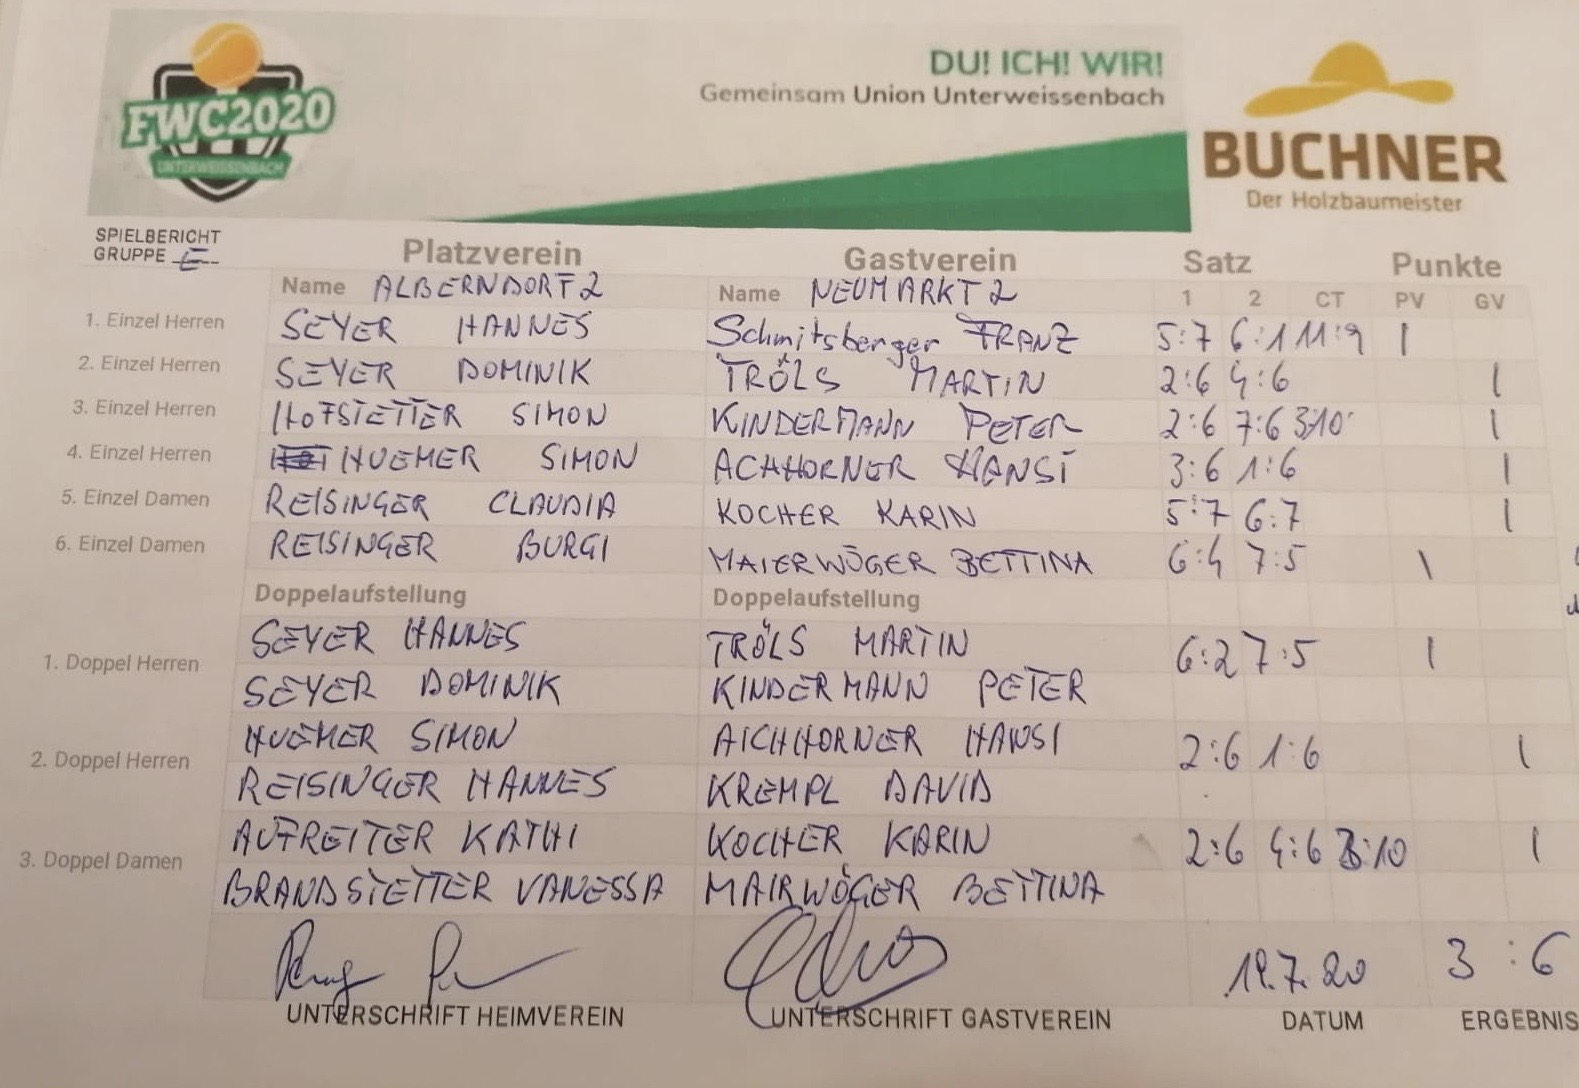 FWC2020
UNTERWEISSENBACH
DU! ICH! WIR!
Gemeinsam Union Unterweissenbach
BUCHNER
Der Holzbaumeister
SPIELBERICHT
GRUPPE E
Platzverein Gastverein Satz Punkte
Name ALBERNDORF 2 Name NEUMARKT 2 1 2 CT PV GV
1. Einzel Herren SEYER HANNES Schmitsberger FRANZ 5:7 6:1 11:9 1
2. Einzel Herren SEYER DOMINIK TRÖLS MARTIN 2:6 4:6 1
3. Einzel Herren HOFSTETTER SIMON KINDERMANN PETER 2:6 7:6 3:10 1
4. Einzel Herren HUEMER SIMON ACHHORNER HANSI 3:6 1:6 1
5. Einzel Damen REISINGER CLAUDIA KOCHER KARIN 5:7 6:7 1
6. Einzel Damen REISINGER BURGI MAIERWÖGER BETTINA 6:4 7:5 1
Doppelaufstellung Doppelaufstellung
SEYER HANNES TRÖLS MARTIN 6:2 7:5 1
1. Doppel Herren
SEYER DOMINIK KINDERMANN PETER
HUEMER SIMON AICHHORNER HANSI 2:6 1:6 1
2. Doppel Herren
REISINGER HANNES KREMPL DAVID
AUFREITER KATHI KOCHER KARIN 2:6 4:6 :10 1
3. Doppel Damen
BRANDSTETTER VANESSA MAIRWÖGER BETTINA
19.7.20 3:6
UNTERSCHRIFT HEIMVEREIN UNTERSCHRIFT GASTVEREIN DATUM ERGEBNIS